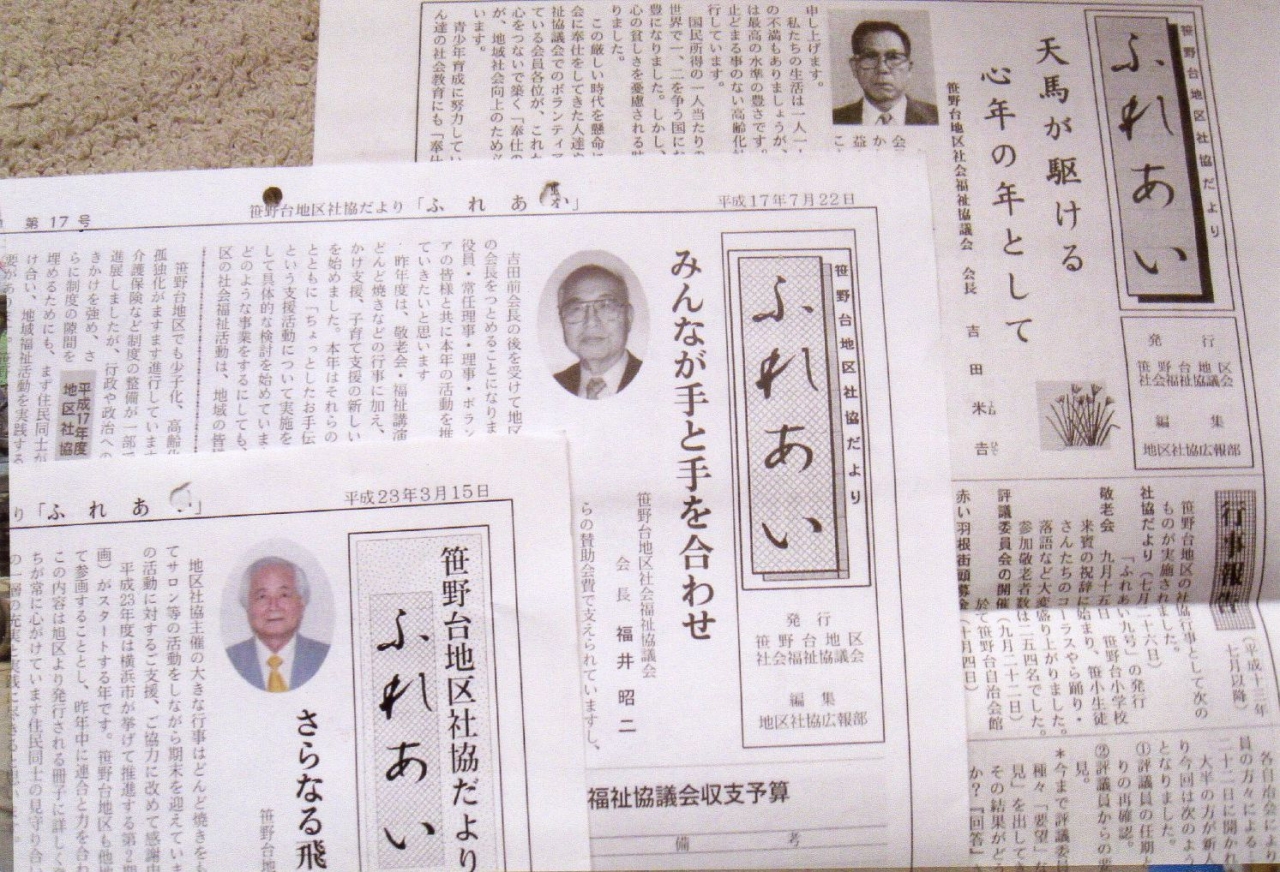 笹野台地区社協だより
ふれあい
発行
笹野台地区
社会福祉協議会
編集
地区社協広報部
天馬が駆ける
心年の年として
笹野台地区社会福祉協議会 会長 吉田米吉
申し上げます。
私たちの生活は一人一人
の不満もありましょうが、
は最高の水準の豊さです。
止どまる事のない高齢化
行しています。
国民所得の一人当たりの
世界で一、二を争う国にお
豊になりました。しかし、
心の貧しさを憂慮される
りました。
この厳しい時代を懸命に
会に奉仕をしてきた人達や
祉協議会でのボランティア
ている会員各位が、これか
心をつないで築く「奉仕の
が、地域社会向上のため必
います。
青少年育成に努力してい
ん達の社会教育にも「奉仕
行事報告
(平成十三年
七月以降)
笹野台地区の社協行事として次の
ものが実施されました。
社協だより(七月二十六日)
「ふれあい九号」の発行
敬老会 九月十五日 笹野台小学校
来賓の祝辞に始まり、笹小生徒
さんたちのコーラスやら踊り・
落語など大変盛り上がりました。
参加敬老者数は二五四名でした。
評議委員会の開催(九月二十二日)
於て笹野台自治会館
赤い羽根街頭募金(十月四日)
各自治会により
員の方々による
二十二日に開かれ
大半の方が新人
り今回は次のよう
となりました。
①評議員の任期と
りの再確認。
②評議員からの要
見。
*今まで評議委員
種々「要望」な
見」を出してき
その結果がどう
か?『回答』
第17号
笹野台地区社協だより「ふれあい」
平成17年7月22日
笹野台地区社協だより
ふれあい
発行
笹野台地区
社会福祉協議会
編集
地区社協広報部
みんなが手と手を合わせ
笹野台地区社会福祉協議会
会長 福井昭二
吉田前会長の後を受けて地区
の会長をつとめることになりま
役員・常任理事・理事・ボラン
アの皆様と共に本年の活動を推
ていきたいと思います
昨年度は、敬老会・福祉講演
どんど焼きなどの行事に加え、
かけ支援、子育て支援の新しい
を始めました。本年はそれらの
とともに「ちょっとしたお手伝
という支援活動について実施を
して具体的な検討を始めていま
どのような事業をするにしても、
区の社会福祉活動は、地域の皆
らの賛助会費で支えられていますし、
笹野台地区でも少子化、高齢化
孤独化がますます進行しています
介護保険など制度の整備が一部で
進展しましたが、行政や政治への
きかけを強め、さ
らに制度の隙間を
埋めるためにも、まず住民同士が
け合い、地域福祉活動を実践する
要があり
平成17年度
地区社協
福祉協議会収支予算
備考
り「ふれあい」
平成23年3月15日
笹野台地区社協だより
ふれあい
さらなる飛
笹野台地
地区社協主催の大きな行事はどんど焼きをも
てサロン等の活動をしながら期末を迎えていま
の活動に対するご支援、ご協力に改めて感謝申
平成23年度は横浜市が挙げて推進する第2期
画)がスタートする年です。笹野台地区も他地
て参画することとし、昨年中に連合と力を合わ
この内容は地区より発行される冊子に詳しく
ちが常に心がけています住民同士の見守り合い